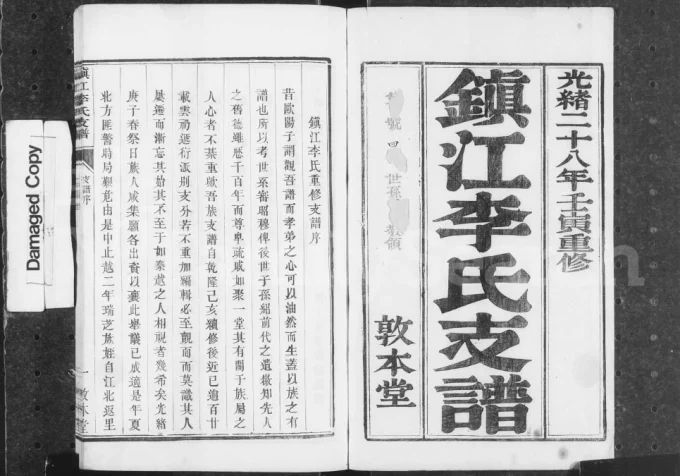 光緒二十八年壬寅重修
鎮江李氏支譜
敦本堂
號
世孫
領
鎮江李氏重修支譜序
昔歐陽子謂觀吾譜而孝弟之心可以油然而生蓋以族之有
譜也所以考世系審昭穆俾後世子孫紹前代之遺徽知先人
之舊德雖歷千百年而尊卑疏戚如聚一堂其有關于族屬之
人心者不綦重歟吾族支譜自乾隆己亥續修後近已逾百廿
載雲礽遞衍派別支分若不重加編輯必至覿面而莫識其人
屢遷而漸忘其始其不至于如秦越之人相視者幾希矣光緒
庚子春祭日族人咸集願各出貲以襄此舉議已成適是年夏
北方匪警局局觀危由是中止越二年瑞芝族姪自江北返里
鎮江李氏支譜
支譜序
一
敦本堂
Damaged Copy